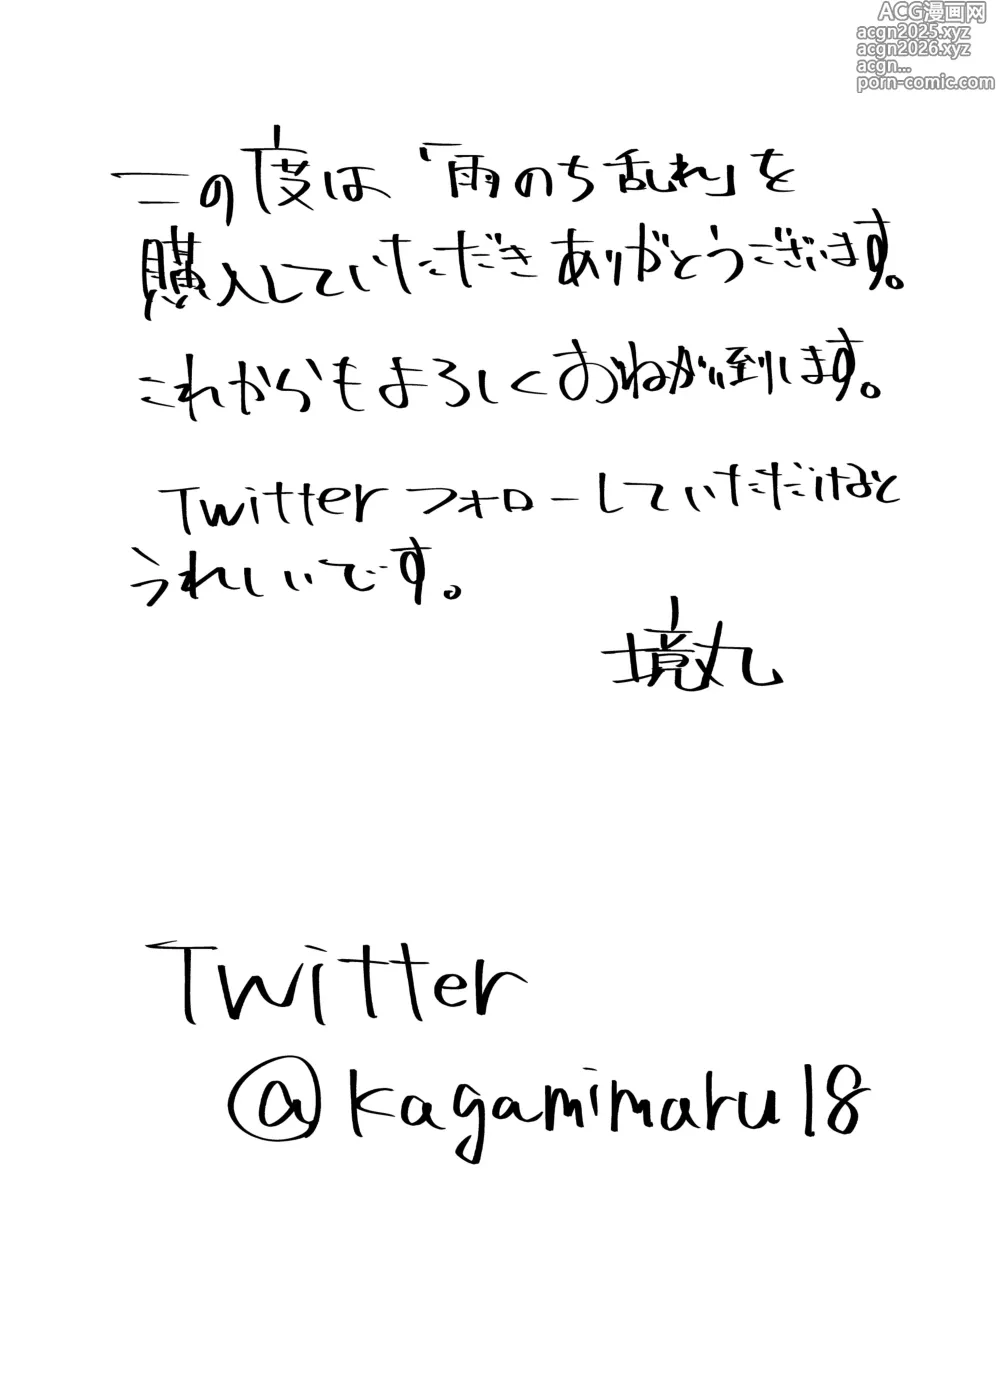 ACG漫画网
acgn2025.xyz
acgn2026.xyz
acgn...
porn-comic.com
この度は「雨のち乱れ」を
購入していただきありがとうございます。
これからもよろしくおねがい致します。
Twitterフォローしていただけると
うれしいです。
境丸
Twitter
@kagamimaru18